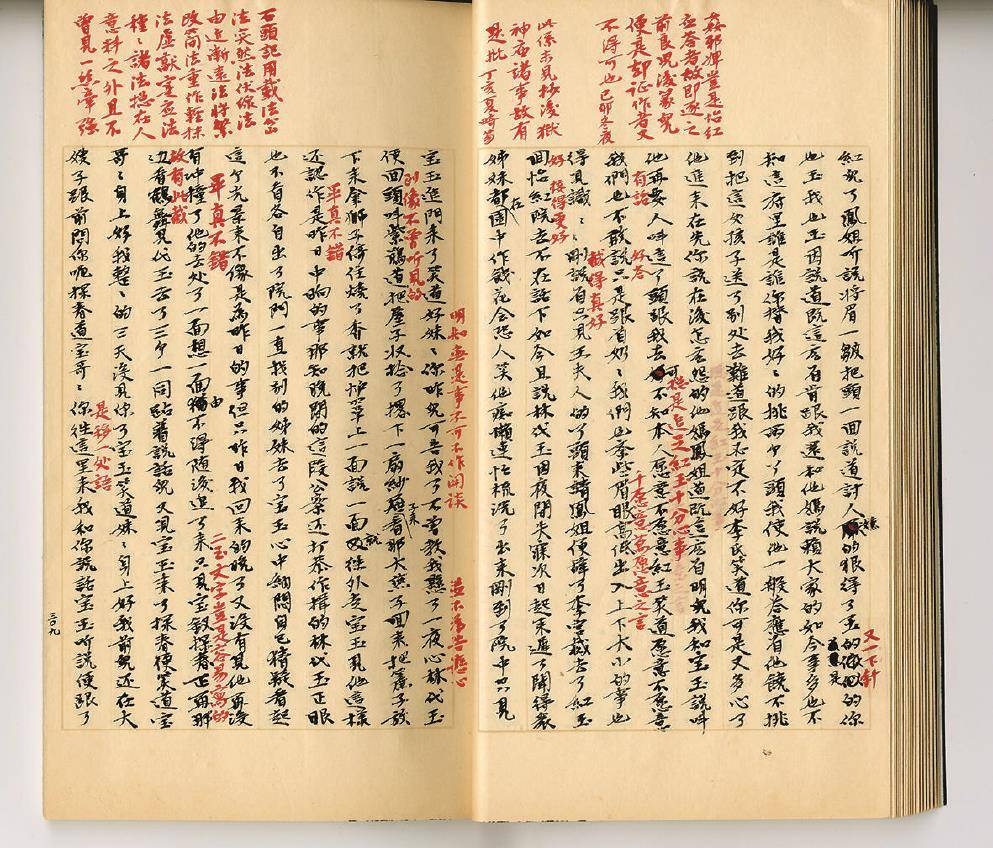 姦邪婢豈是怡紅
應答者故即逐之
前良兒後篆兒
便是却証作者又
不得可也己卯冬夜
此係未見抄後獄
神庙諸事故有
是批丁亥夏畸笏
紅兒了鳳姐听說將眉一皺把頭一回說道討人嫌的狠得了玉的你
又一下針
也玉我也玉因說道既這広肯跟我還和他媽說賴大家的如今事多也不
知這府里誰是誰你替我好〻的挑両个丫頭我使他一般答應着他饒不挑
到把這女孩子送了别処去難道跟我必定不好李氏笑道你可是又多心了
他進来在先你說在後怎広怨的他媽鳳姐道既這広着明兒我和宝玉說叫
總是追寫紅玉十分心事
他再要人叫這丫頭跟我去可不知本人愿意不愿意紅玉笑道愿意不愿意
有話
好答
千愿意萬愿意之言
我們也不敢說只是跟着奶〻我們也學些眉眼高低出入上下大小的事也
截得真好
得見識〻剛說着只見王夫人的丫頭來請鳳姐便辞了李宫裁去了紅玉
好接得更好
回怡紅院去不在話下如今且說林代玉因夜間失寐次日起来遲了聞得衆
姊妹都在園中作餞花会恐人笑他痴懶連忙梳洗了出来剛到了院中只見
石頭記用截法岔
法突然法伏線法
由近漸遠法將繁
改简法重作輕抹
法虚敲實應法
種〻諸法総在人
意料之外且不
曾見一丝牽強
明知無是事不可不作開談
並不為告悲心
宝玉進門来了笑道好妹〻你昨兒可告我了不曾教我懸了一夜心林代玉
到像不曾听見的
便回頭叫紫鵑道把屋子收拾了撂下一扇紗屜看那大燕子回来把簾子放
下来拿獅子倚住燒了香就把炉罩上一面說一面又往外走宝玉見他這樣
平真不錯
還認作是昨日中晌的事那知晚間的這段公案还打恭作揖的林代玉正眼
也不看各自出了院門一直找别的姊妹去了宝玉心中納悶自己猜疑看起
這个光景来不像是為昨日的事但只昨日我回来的晚了又没有見他再没
平真不錯
有冲撞了他的去处了一面想一面由不得随後追了来只見宝釵探春正再那
故有此截
二玉文字豈是容易寫的
边看鶴舞見代玉去了三个一同站着說話兒又見宝玉来了探春便笑道宝
哥〻身上好我整〻的三天没見你了宝玉笑道妹〻身上好我前兒还在大
是移一处語
嫂子跟前問你呢探春道宝哥〻你往這里来我和你說話宝玉听說便跟了
三〇九